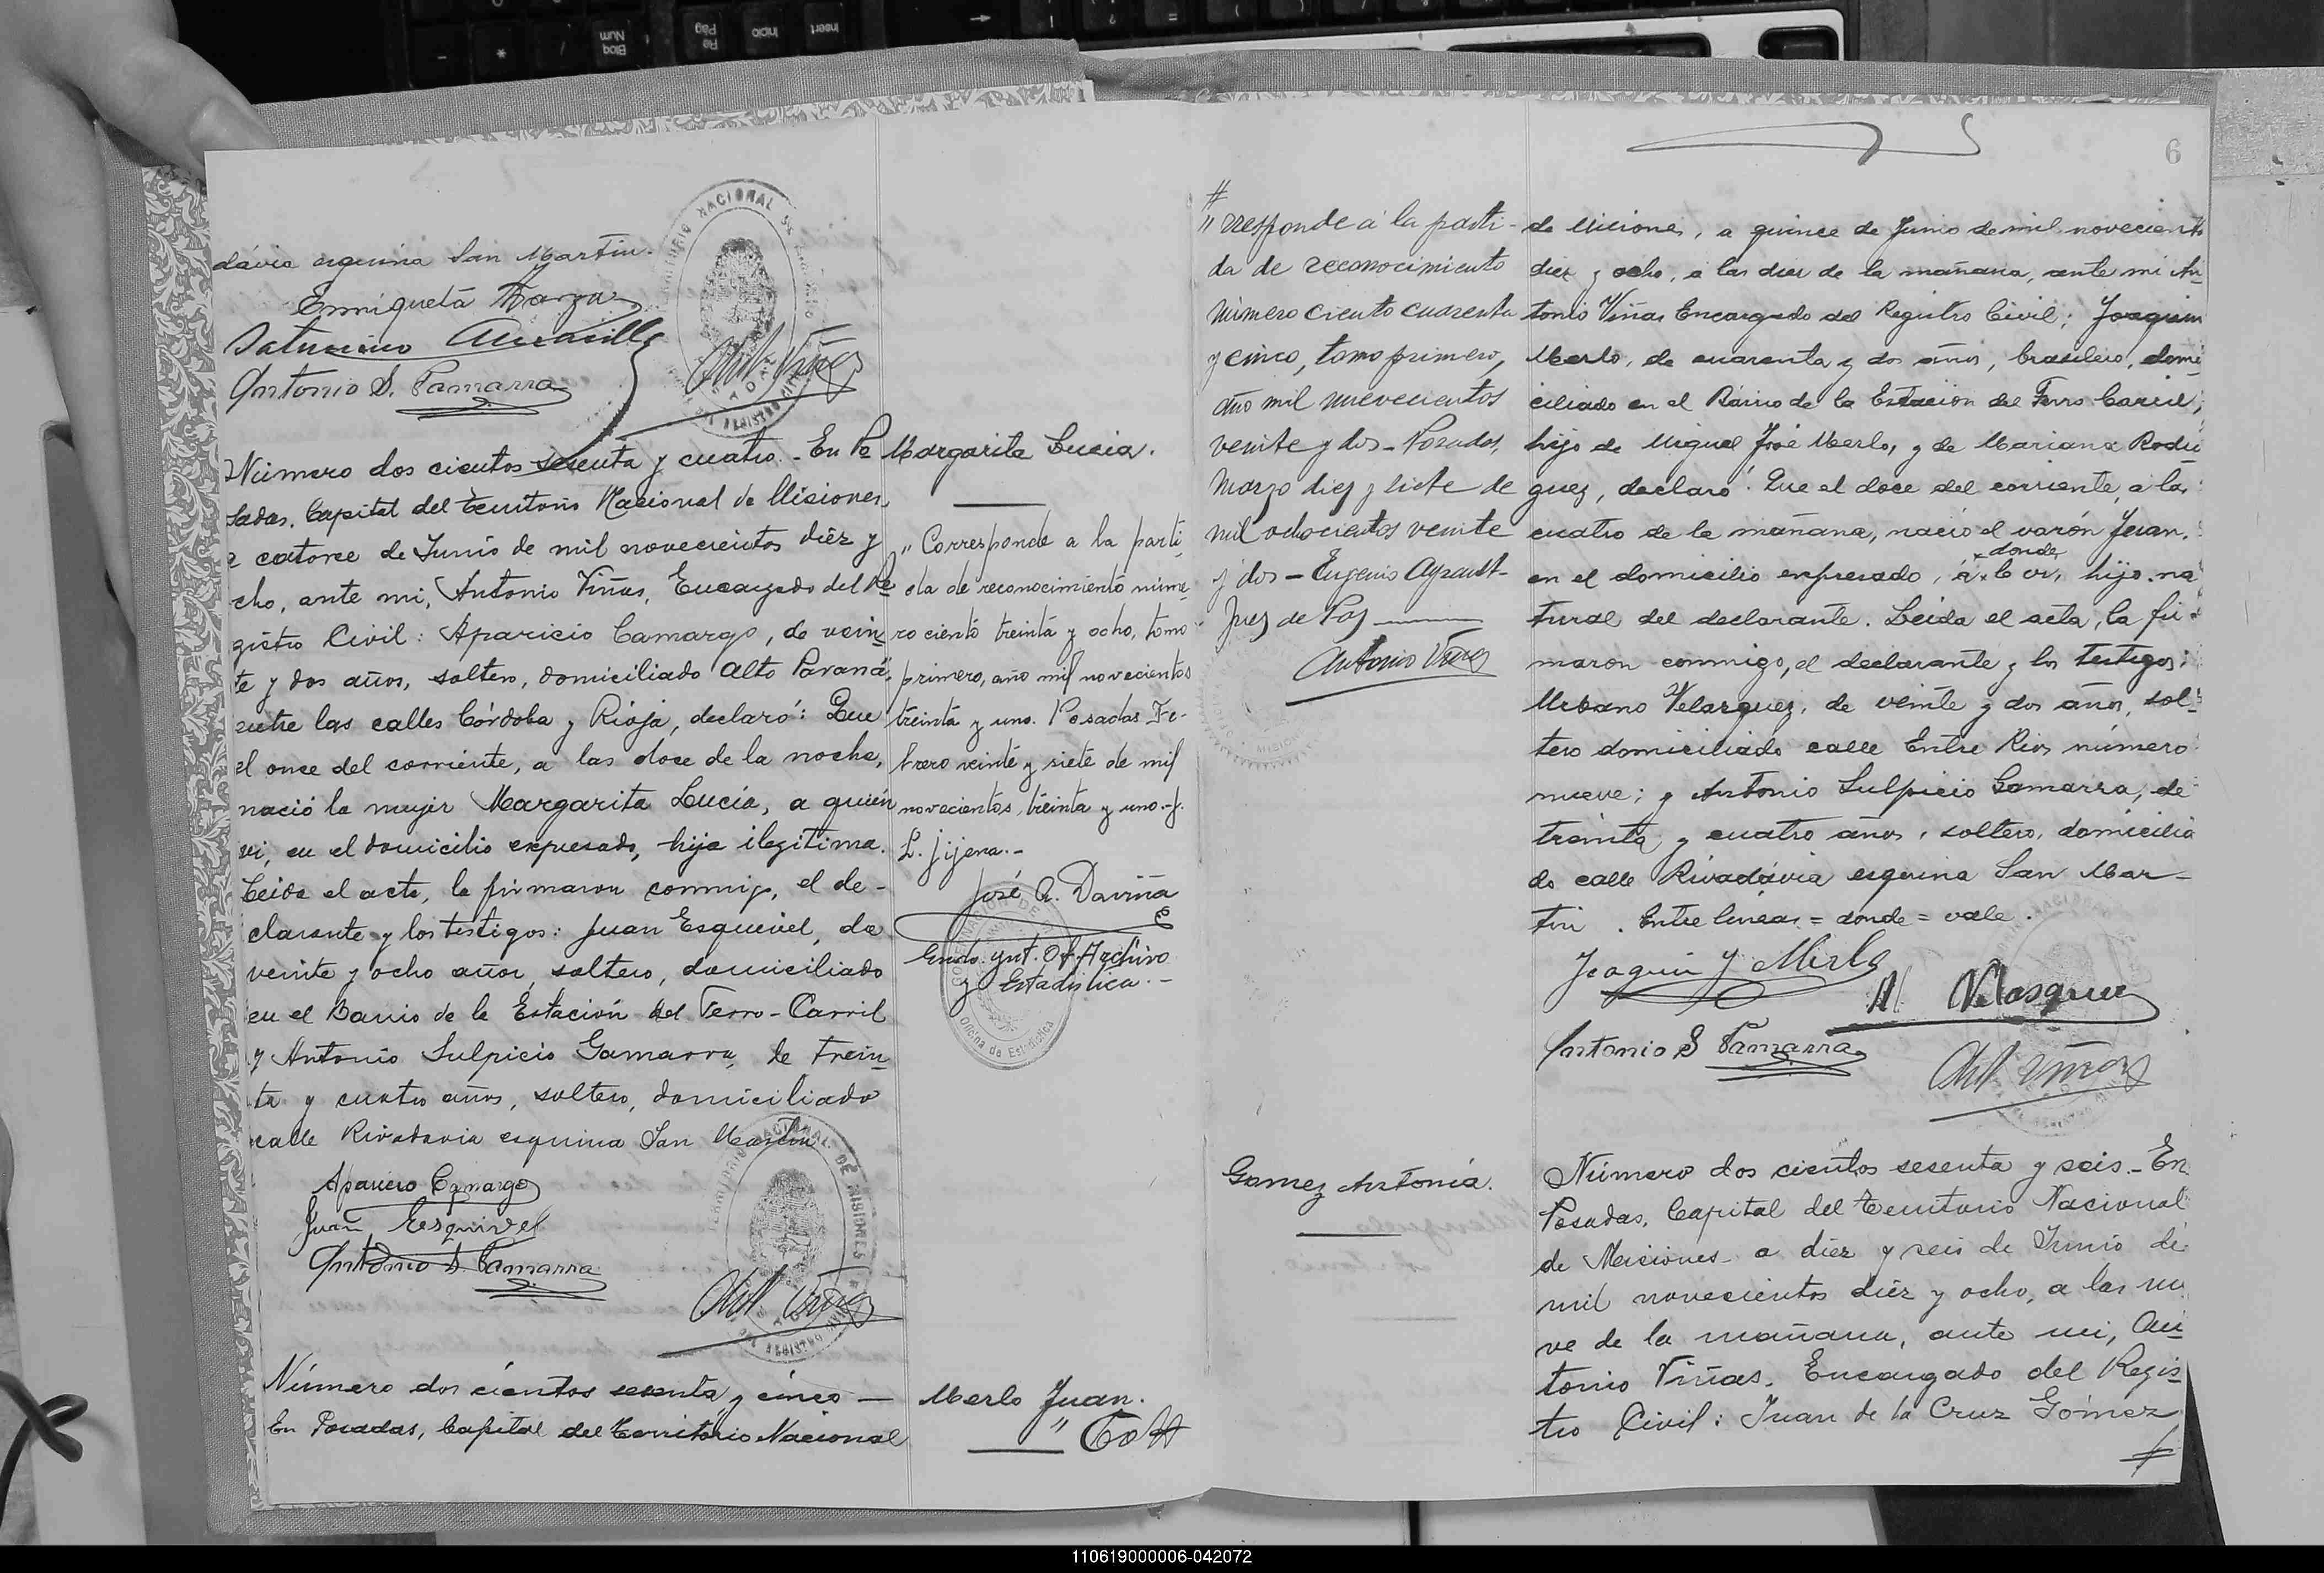 dávia esquina San Martin.
Enriqueta
Saturnino
Antonio S. Gamarra
Ant. Viñas
Número dos cientos sesenta y cuatro. - En Po
sadas, Capital del Territorio Nacional de Misiones,
a catorce de Junio de mil novecientos diéz y
ocho, ante mi, Antonio Viñas, Encargado del Re
gistro Civil: Aparicio Camargo, de vein
te y dos años, soltero, domiciliado Alto Paraná,
entre las calles Córdoba y Rioja, declaró: Que
el once del corriente, a las doce de la noche,
nació la mujer Margarita Lucía, a quién
vi, en el domicilio expresado, hija ilegitima.
Leida el acta, la firmaron conmigo, el de-
clarante y los testigos: Juan Esquivel, de
veinte y ocho años, soltero, domiciliado
en el Barrio de la Estación del Ferro-Carril
y Antonio Sulpicio Gamarra, de trein
ta y cuatro años, soltero, domiciliado
calle Rivadavia esquina San Martin
Aparicio Camargo
Juan Esquivel
Antonio S. Gamarra
Ant. Viñas
Número dos cientos sesenta y cinco —
En Posadas, Capital del Territorio Nacional
Margarita Lucia.
" Corresponde a la parti-
da de reconocimiento núme-
ro ciento treinta y ocho, tomo
primero, año mil novecientos
treinta y uno. Posadas, Fe-
brero veinte y siete de mil
novecientos treinta y uno.- J.
L. Jijena.-
José A. Daviña
Encdo. Int. Of. Archivo
y Estadistica.-
Oficina de Estadistica
Merlo Juan.
" Co #
#
" rresponde a la parti-
da de reconocimiento
número ciento cuarenta
y cinco, tomo primero,
año mil nuevecientos
veinte y dos - Posadas,
Marzo diez y siete de
mil ochocientos veinte
y dos - Eugenio Ayrault-
Juez de Paz
Antonio Viñas
Gomez Antonia.
6
de Misiones, a quince de Junio de mil novecientos
diez y ocho, a las diez de la mañana, ante mi An-
tonio Viñas Encargado del Registro Civil; Joaquin
Merlo, de cuarenta y dos años, brasilero, domi
ciliado en el Barrio de la Estación del Ferro Carril,
hijo de Miguel José Merlo, y de Mariana Rodri
guez, declaró: Que el doce del corriente, a las
cuatro de la mañana, nació el varón Juan,
en el domicilio expresado, donde lo vi, hijo na
tural del declarante. Leida el acta, la fir
maron conmigo, el declarante y los testigos:
Urbano Velazquez, de veinte y dos años, sol-
tero domiciliado calle Entre Rios número
nueve; y Antonio Sulpicio Gamarra, de
treinta y cuatro años, soltero, domicilia
do calle Rivadávia esquina San Mar-
tin. Entre lineas = donde = vale.
Joaquin J Merlo
U Velasquez
Antonio S Gamarra
Ant Viñas
Número dos cientos sesenta y seis.- En
Posadas, Capital del Territorio Nacional
de Misiones - a diéz y seis de Junio de
mil novecientos diéz y ocho, a las nu
ve de la mañana, ante mi, An
tonio Viñas. Encargado del Regis
tro Civil: Juan de la Cruz Gómez
#
110619000006-042072